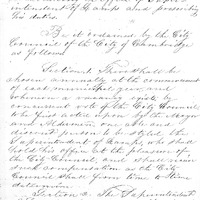 intendent of Lamps and prescribing
his duties.
Be it ordained by the City
Council of the City of Cambridge
as follows:
Section 1. There shall be
chosen annually at the commencement
of each municipal year, and
whenever a vacancy exists, by
concurrent vote of the City Council,
to be first acted upon by the Mayor
and Aldermen, one able and
discreet person to be styled the
Superintendent of Lamps who shall
hold his office at the pleasure of
the City Council, and shall receive
such compensation as the City
Council shall from time to time
determine.
Section 2. The Superintendent